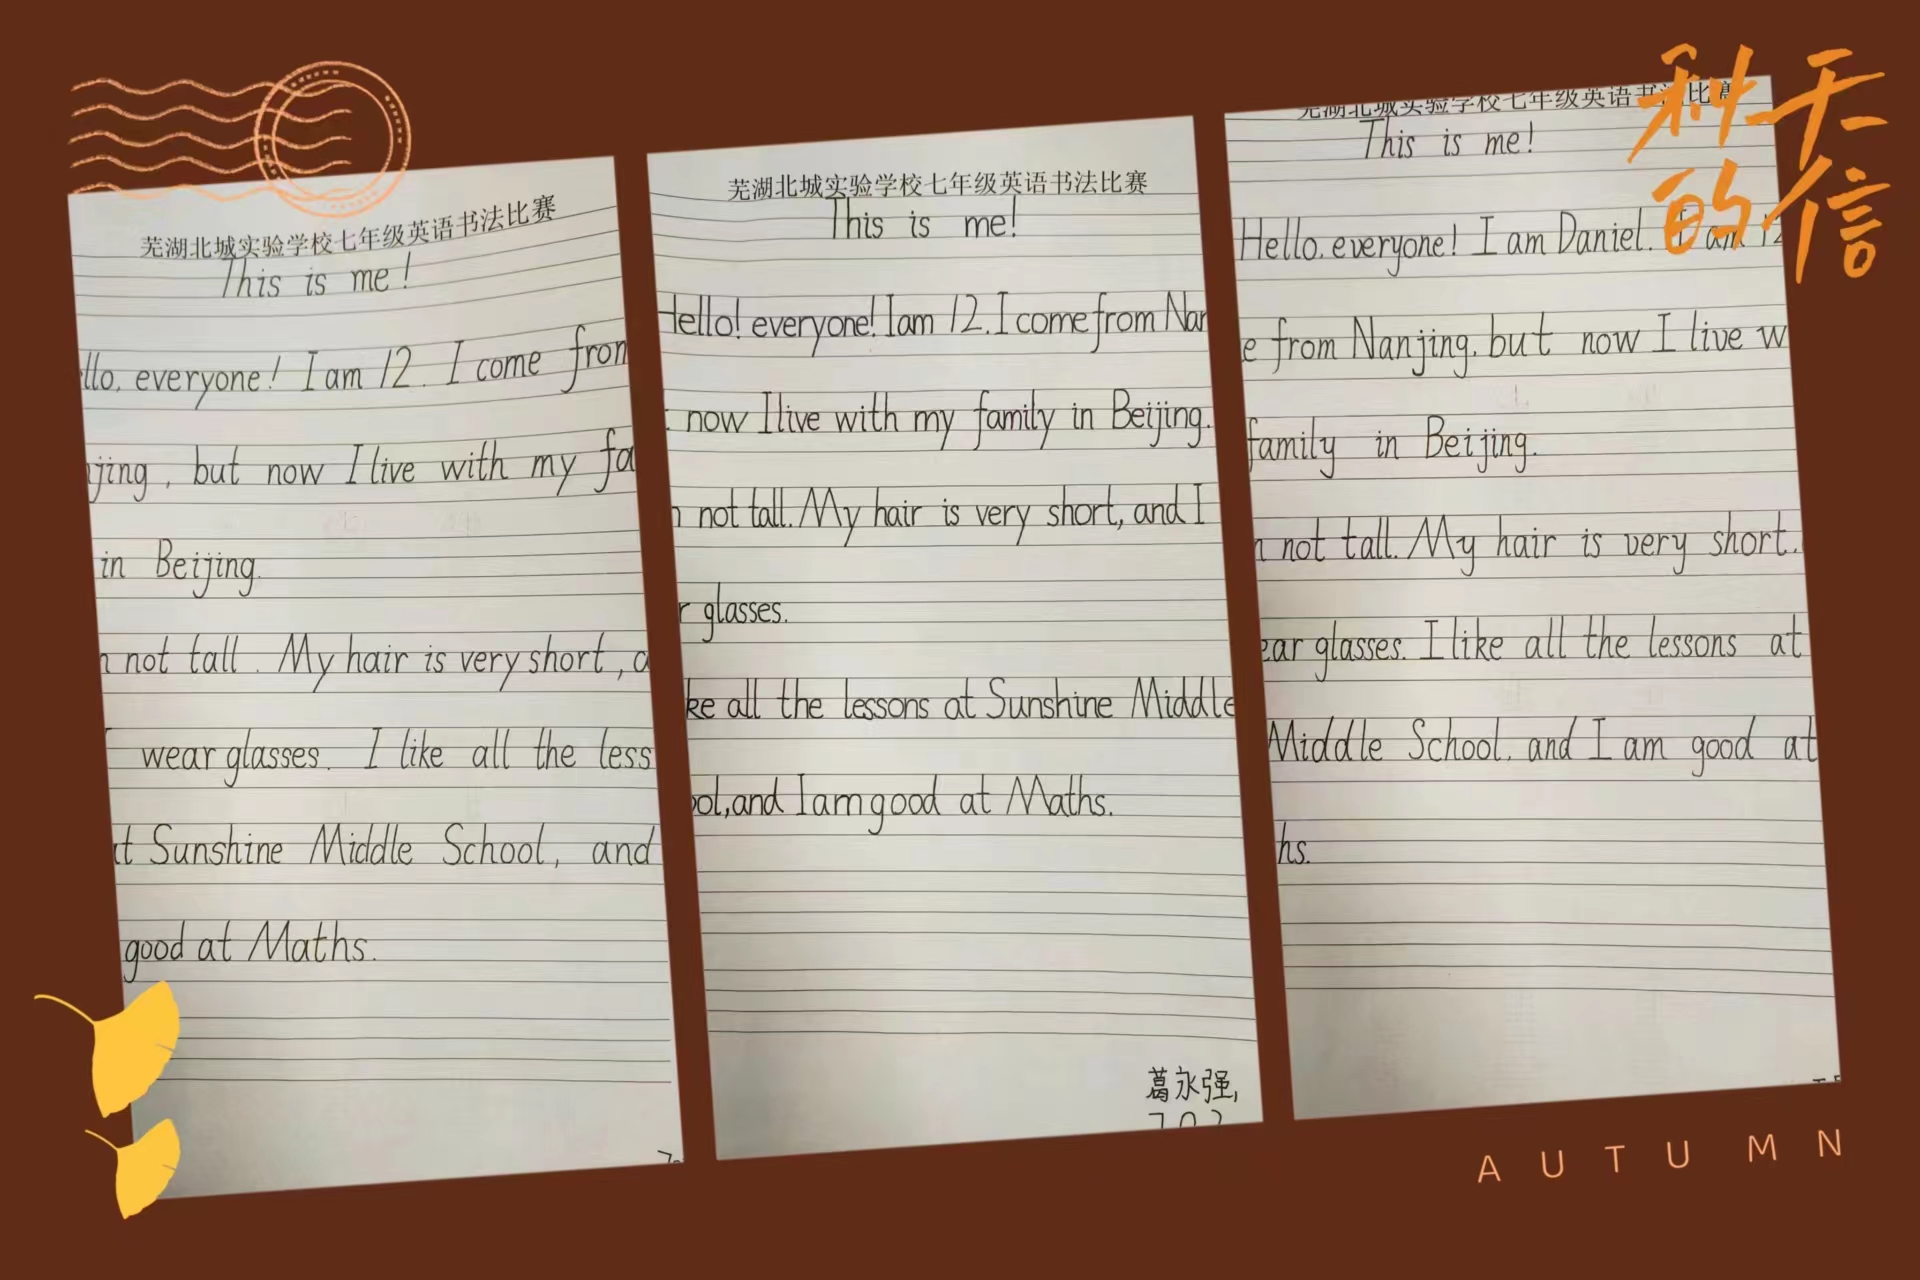 芜湖北城实验学校七年级英语书法比赛
This is me!
llo, everyone! I am 12. I come from
jing, but now I live with my fa
in Beijing.
not tall. My hair is very short, a
I wear glasses. I like all the less
at Sunshine Middle School, and
good at Maths.
芜湖北城实验学校七年级英语书法比赛
This is me!
Hello! everyone! I am 12. I come from Nan
now I live with my family in Beijing.
not tall. My hair is very short, and I
r glasses.
ke all the lessons at Sunshine Middle
ool, and I am good at Maths.
葛永强,
702
秋天的信
芜湖北城实验学校七年级英语书法比赛
This is me!
Hello, everyone! I am Daniel. I am 12
e from Nanjing, but now I live w
family in Beijing.
not tall. My hair is very short.
ear glasses. I like all the lessons at
Middle School, and I am good at
hs.
AUTUMN